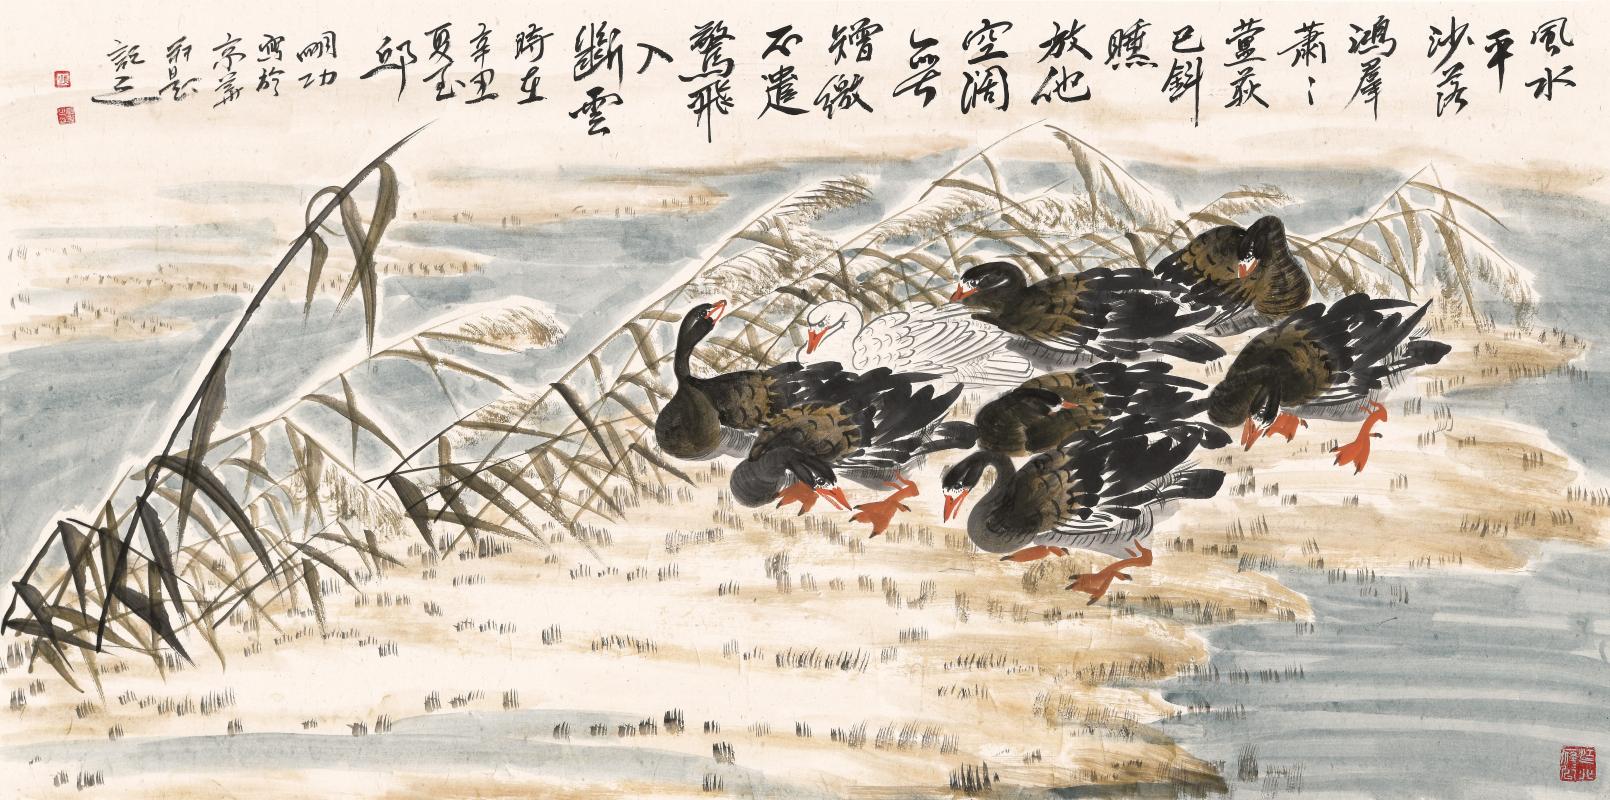 風水
平
沙落
鴻羣
蕭〻
蘆荻
已斜
曛
放他
空闊
無
矰繳
不遣
驚飛
入
斷雲
時在
辛丑
夏玉
邱
寫於
京華
記之